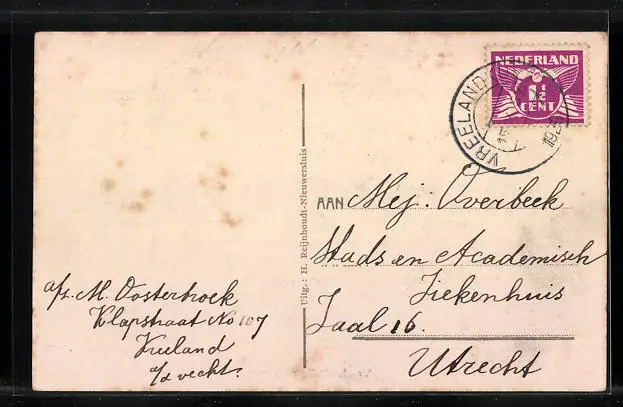 NEDERLAND
1½
CENT
VREELAND
AAN Mej: Overbeek
Stads en Academisch
Ziekenhuis
Zaal 16.
Utrecht
Uitg.: H. Reijnhoudt-Nieuwersluis
M. Oosterhoek
Klapstraat No 107
Vreeland
a/d vecht.